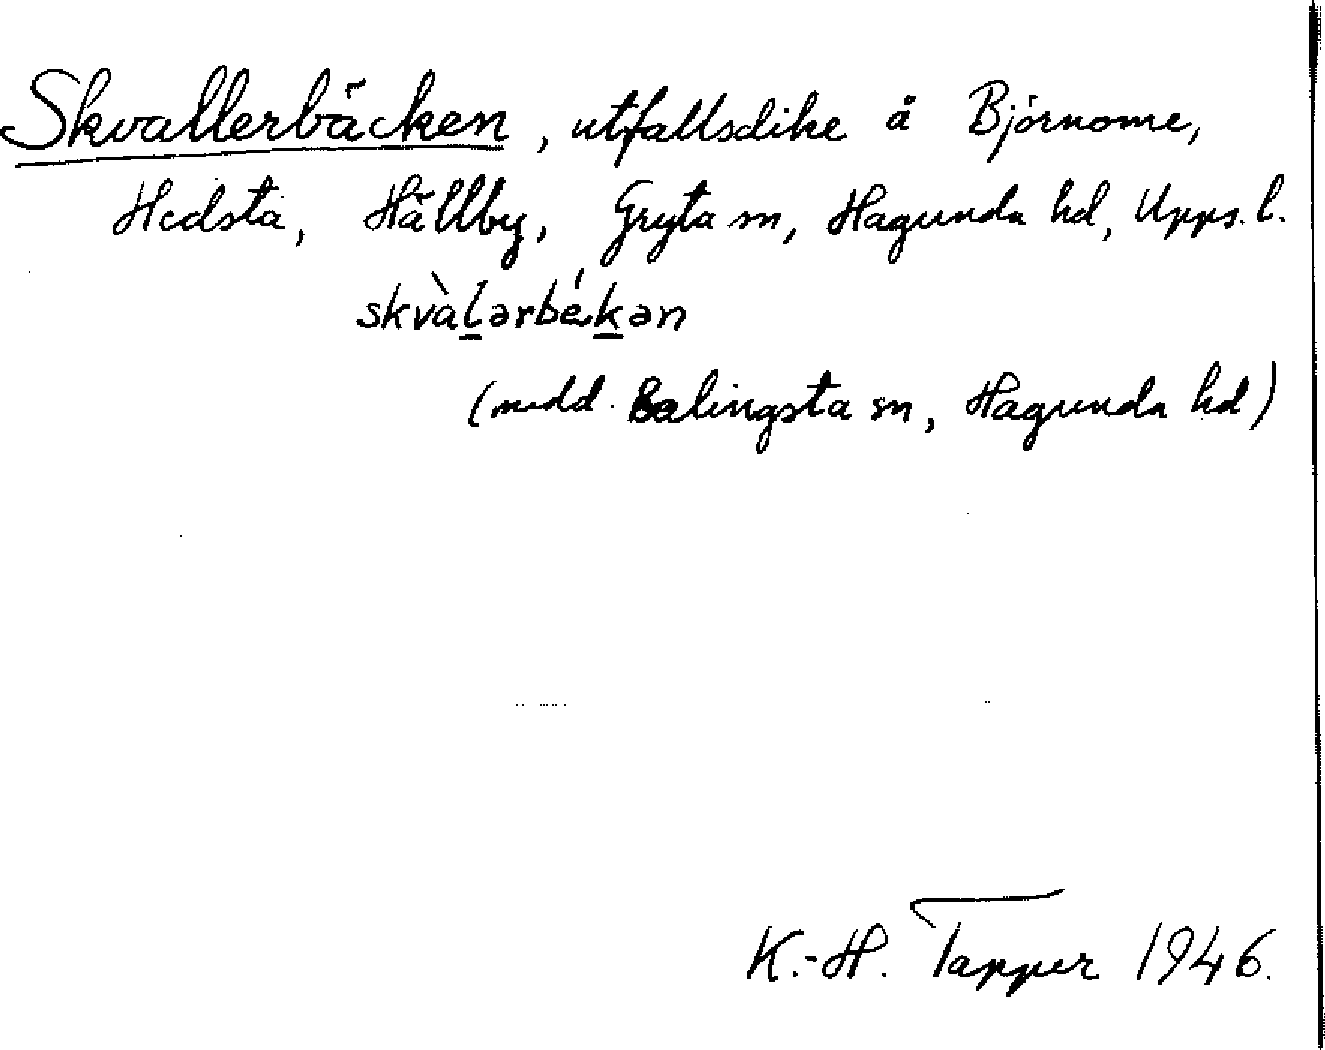 Skvallerbäcken, utfallsdike å Björnome,
Hedsta, Hällby, Gryta sn, Hagunda hd, Upps. l.
skvàl̲ərbǽk̲ən
(medd. Balingsta sn, Hagunda hd)
K.-H. Tapper 1946.